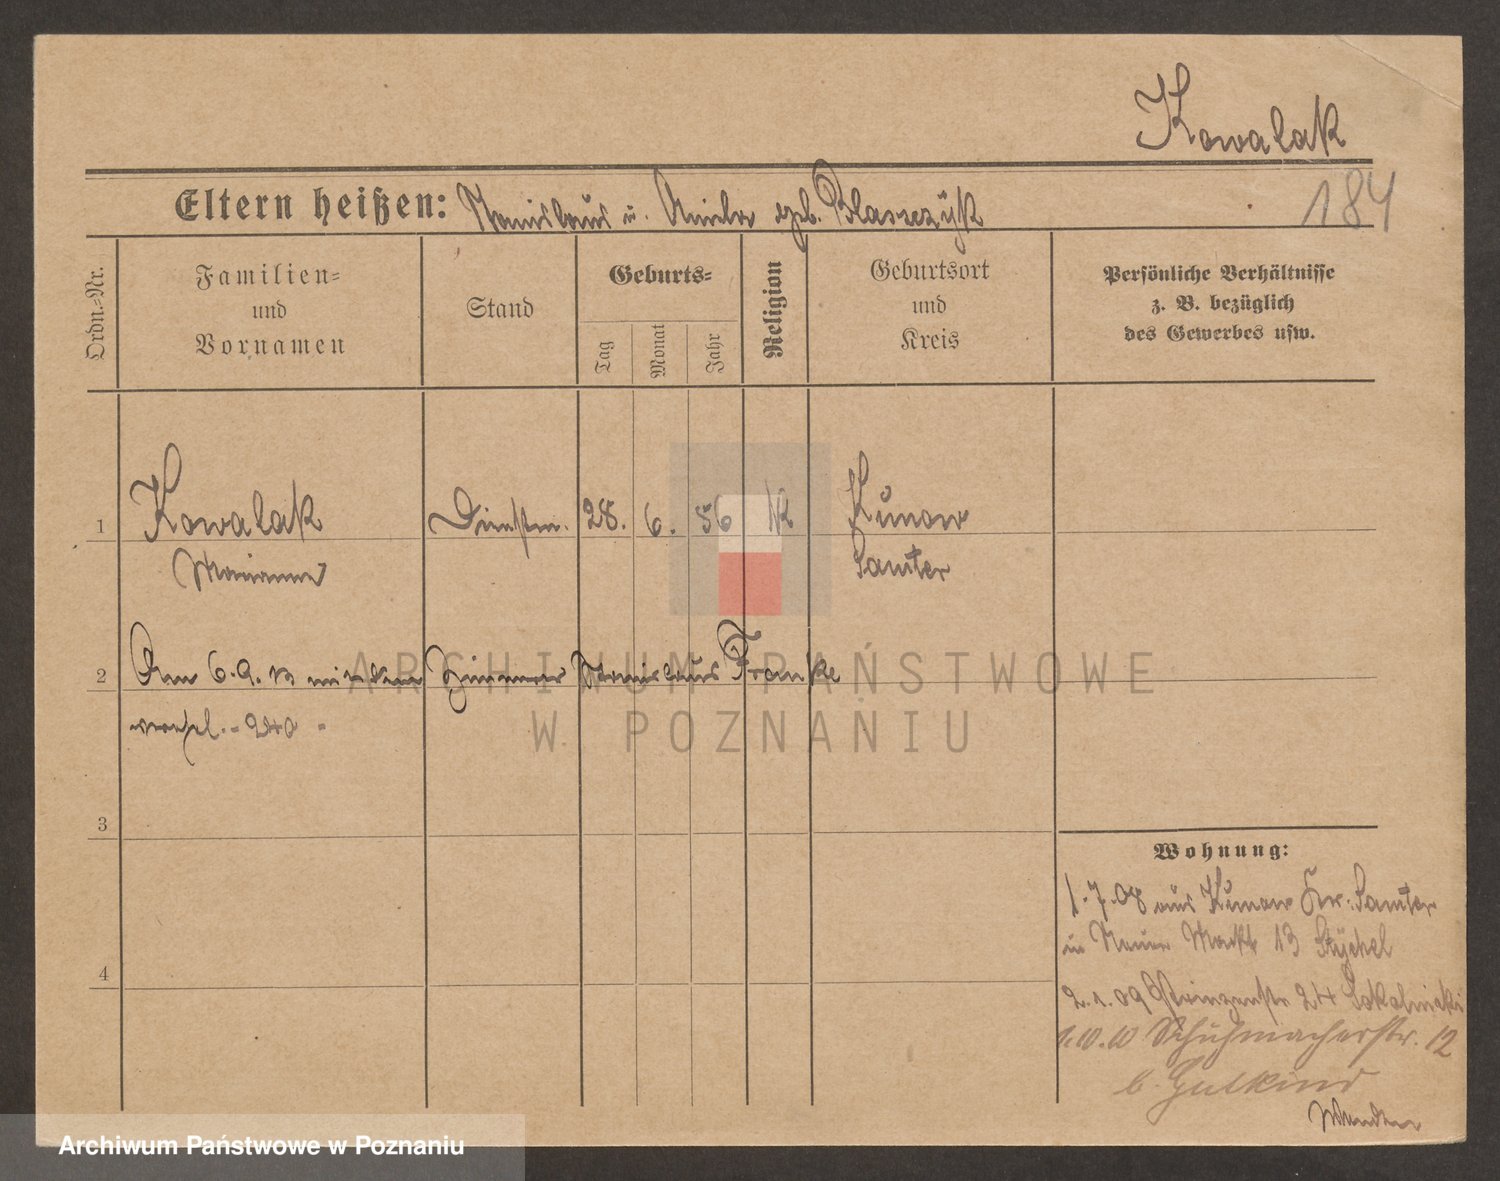 Kowalak
184
Eltern heißen: Stanislaus u. geb. Blaszczyk
Ordn.=Nr.
Familien=
und
Vornamen
Stand
Geburts=
Tag
Monat
Jahr
Religion
Geburtsort
und
Kreis
Persönliche Verhältnisse
z. B. bezüglich
des Gewerbes usw.
1 Kowalak Dienstm. 28. 6. 86 K Kunow
Marianna Samter
2 Am 6.9. mit dem Zimmerer Stanislaus Franke
verehel.
ARCHIWUM PAŃSTWOWE
W POZNANIU
3
4
Wohnung:
1.7.08 aus Kunow Kr. Samter
in Neuer Markt 13
2.1.09 Prinzenstr 24
1.10.10 Schuhmacherstr. 12
b. Gutkind
Archiwum Państwowe w Poznaniu